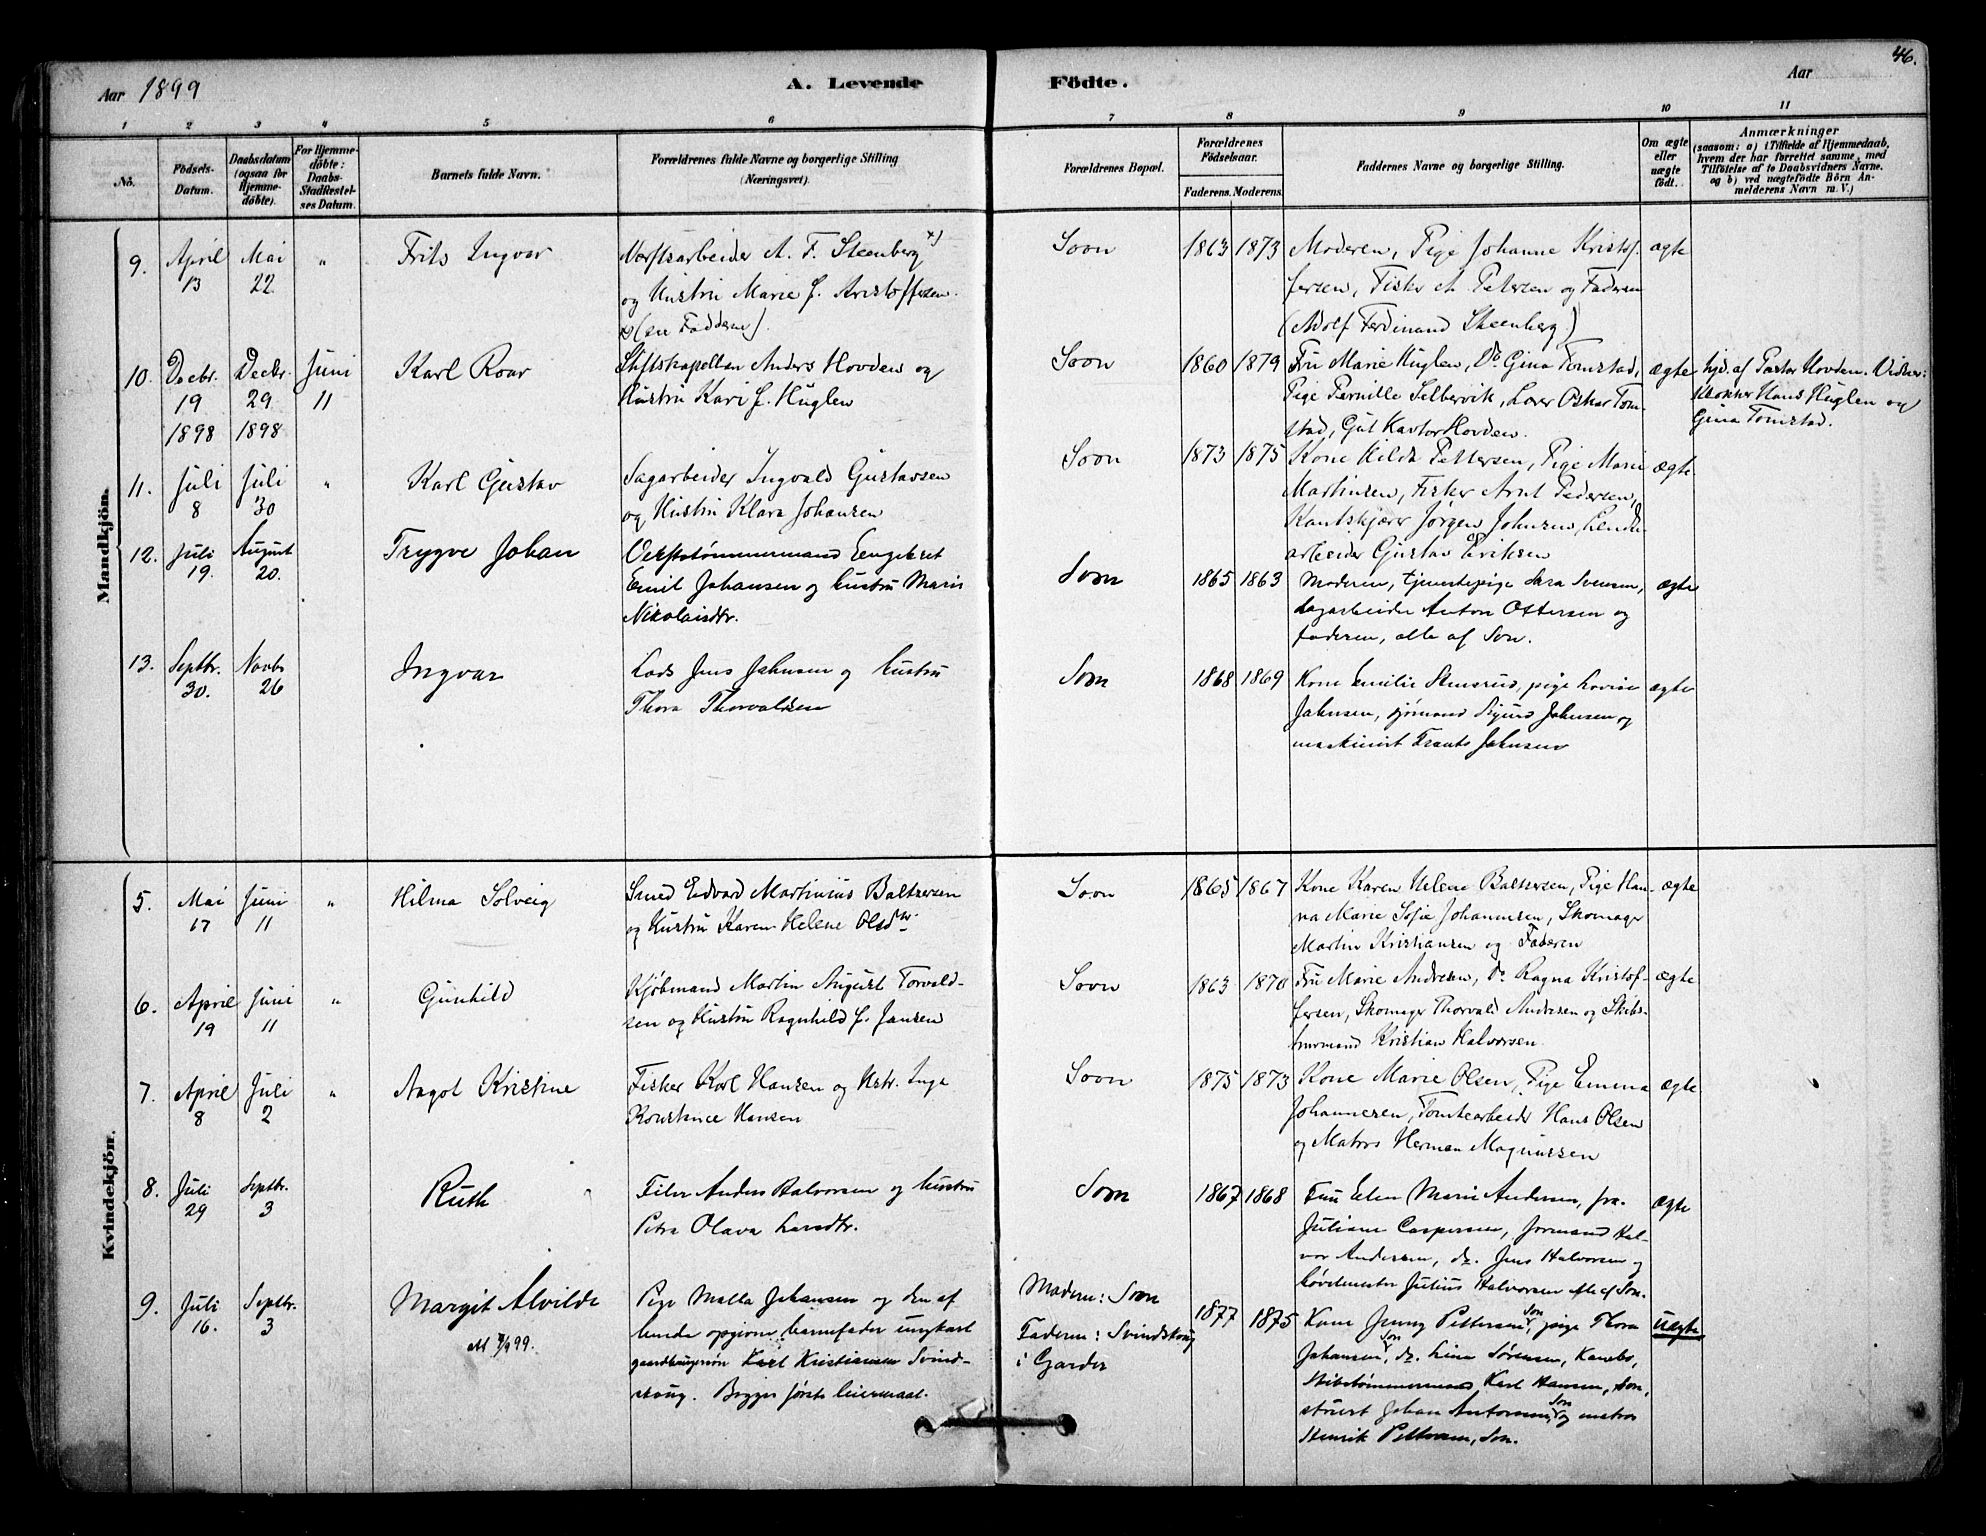 46.
Aar 1899 A. Levende Födte. Aar
1 2 3 4 5 6 7 8 9 10 11
No. Födsels-Datum. Daabsdatum (ogsaa for Hjemme-døbte). For Hjemme-døbte: Daabs-Stadfæstel-ses Datum. Barnets fulde Navn. Forældrenes fulde Navne og borgerlige Stilling (Næringsvei). Forældrenes Bopæl. Forældrenes Födselsaar. Faderens. Moderens. Faddernes Navne og borgerlige Stilling. Om ægte eller uægte født. Anmærkninger (saasom: a) i Tilfælde af Hjemmedaab, hvem der har forrettet samme, med Tilføielse af to Daabsvidners Navne, og b) ved uægtefödte Börn An-melderens Navn m. V.)
Mandkjön.
9. April 13 Mai 22 " Frits Ingvar
Værftsarbeider A. F. Steenberg x)
og Hustru Marie f. Kristoffersen.
x) (se Fadderne).
Soon 1863 1873
Moderen, Pige Johanne Kristof-
fersen, Fisker A. Petersen og Faderen
(Adolf Ferdinand Steenberg)
ægte
10. Decbr. 19 1898 Decbr. 29 1898 Juni 11 Karl Roar
Stiftskapellan Anders Hovden og
Hustru Kari f. Huglen
Soon 1860 1879
Fru Marie Huglen, Do Gina Tomstad,
Pige Pernille Selbervik, Lærer Oskar Tom-
stad, Gut Kastor Hovden.
ægte
hjd. af Pastor Hovden. Vidner:
Klokker Hans Huglen og
Gina Tomstad.
11. Juli 8 Juli 30 " Karl Gustav
Sagarbeider Ingvald Gustavsen
og Hustru Klara Johansen
Soon 1873 1875
Kone Hilda Pettersen, Pige Marie
Martinsen, Fisker Arnt Pedersen,
Jørgen Johnsen,
arbeider Gustav Eriksen
ægte
12. Juli 19. August 20. Trygve Johan
Verftstømmermand Engebret
Emil Johansen og hustru Marie
Nikolaisdtr.
Son 1865 1863
Moderen, tjenestepige Sara Svensen,
sagarbeider Anton Ottersen og
faderen, alle af Son.
ægte
13. Septbr. 30. Novbr 26 Ingvar
Lods Jens Jahnsen og hustru
Thora Thorvaldsen
Son 1868 1869
Kone Emilie Stensrud, pige Lovise
Jahnsen, sjømand Sigurd Jahnsen og
maskinist Frants Jahnsen
ægte
Kvindekjön.
5. Mai 17 Juni 11 " Hilma Solveig
Smed Edvard Martinius Baltsersen
og Hustru Karen Helene Olsdtr.
Soon 1865 1867
Kone Karen Helene Baltsersen, Pige Han-
na Marie Sofie Johannesen, Skomager
Martin Kristiansen og Faderen
ægte
6. April 19 Juni 11 " Gunhild
Kjøbmand Martin August Torvald-
sen og Hustru Ragnhild f. Jansen
Soon 1863 1870
Fru Marie Andresen, Do Ragna Kristof-
fersen, Skomager Thorvald Andresen og Skibs-
Kristian Halvorsen.
ægte
7. April 8 Juli 2 " Aagot Kristine
Fisker Karl Hansen og Hstr. Inga
Konstance Hansen
Soon 1875 1873
Kone Marie Olsen, Pige Emma
Johannesen, Tomtearbeider Hans Olsen
og Matros Herman Magnussen
ægte
8. Juli 29 Septbr. 3 Ruth
Filer Anders Halvorsen og hustru
Petra Olava Larsdtr.
Son 1867 1868
Fru Elen Marie Andersen, fru
Juliane Caspersen, formand Hal-
vor Andersen, do. Jens Halvorsen og
Julius Halvorsen Alle af Son.
ægte
9. Juli 16. Septbr. 3 Margit Alvilde
Pige Malla Johansen og den af
hende opgivne barnefader ungkarl
gaardbrugersøn Karl Kristiansen Svind-
skoug. Begges første leiermaal.
Moderen: Son
Faderen: Svindskoug
i Garder
1877 1875
Kone Jenny Pettersen, Son pige Thora
Johansen, Son do. Lina Sørensen,
Skibstømmermand Karl Hansen, Son,
stuert Johan Antonsen, Son og matros
Henrik Pettersen, Son.
uægte